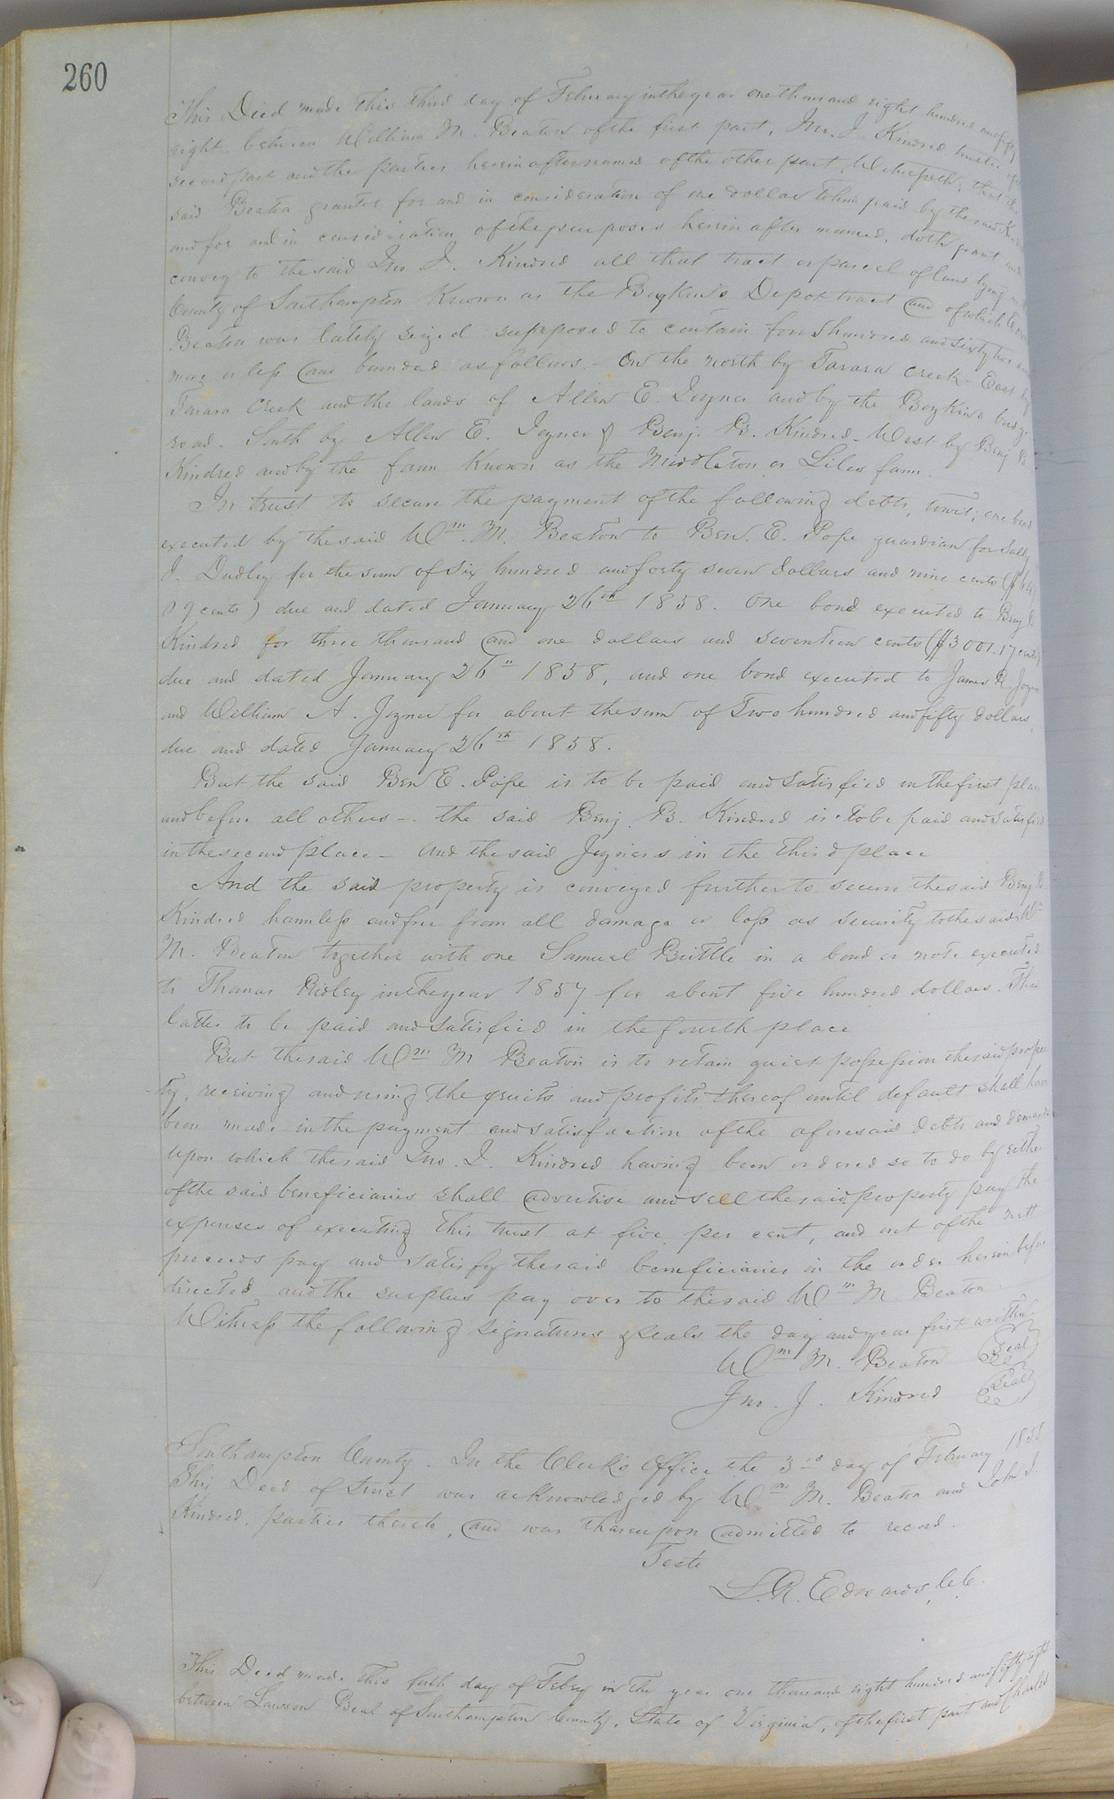 260
This Deed made this third day of February in the year one thousand eight hundred and fifty
eight between William M. Beaton of the first part, Jno. J. Kindred trustee of the
second part and the parties herein after named of the other part, Witnesseth, that the
said Beaton grantor for and in consideration of one dollar to him paid by the said
and for and in consideration of the purposes herein after named, doth grant and
convey to the said Jno J. Kindred all that tract or parcel of land lying in
County of Southampton Known as the Boykin's Depot tract and of which
Beaton was lately seized supposed to contain four hundred and sixty
more or less and bounded as follows - On the north by Tarara Creek - East by
Tarara Creek and the lands of Allen E. Joyner and by the Boykins bridge
road. South by Allen E. Joyner & Benj. B. Kindred - West by Benj B
Kindred and by the farm Known as the Middleton or Liles farm.
In trust to secure the payment of the following debts, towit; one bond
executed by the said Wm. M. Beaton to Ben. E. Pope guardian for
J. Dudley for the sum of six hundred and forty seven dollars and nine cents ($647
09 cents) due and dated January 26th 1858. One bond executed to Benj B
Kindred for three thousand and one dollars and seventeen cents ($3001.17 cents)
due and dated January 26th 1858, and one bond executed to James R. Joyner
and William A. Joyner for about the sum of Two hundred and fifty dollars
due and dated January 26th 1858.
But the said Ben E. Pope is to be paid and satisfied in the first place
and before all others - the said Benj. B. Kindred is to be paid and satisfied
in the second place - and the said Joyners in the third place
And the said property is conveyed further to secure the said Benj B
Kindred harmless and free from all damage or loss as security to the said Wm
M. Beaton together with one Samuel Brittle in a bond or note executed
to Thomas Ridley in the year 1857 for about five hundred dollars. The
latter to be paid and satisfied in the fourth place
But the said Wm M Beaton is to retain quiet possession the said proper
ty, receiving and using the fruits and profits thereof until default shall have
been made in the payment and satisfaction of the aforesaid debts and demands
upon which the said Jno. J. Kindred having been ordered so to do by either
of the said beneficiaries shall advertise and sell the said property pay the
expenses of executing this trust at five per cent, and out of the nett
proceeds pay and satisfy the said beneficiaries in the order herein before
directed and the surplus pay over to the said Wm M. Beaton.
Witness the following signatures & seals the day and year first written
Wm M. Beaton Seal
Jno. J. Kindred Seal
Southampton County. In the Clerk's Office the 3rd day of February 1858
This Deed of Trust was acknowledged by Wm M. Beaton and John J.
Kindred, parties thereto, and was thereupon admitted to record.
Teste
L. R. Edwards, C. C.
This Deed made this day of Feby in the year one thousand eight hundred and fifty eight
between Lawson Beal of Southampton County, State of Virginia, of the first part and Charles